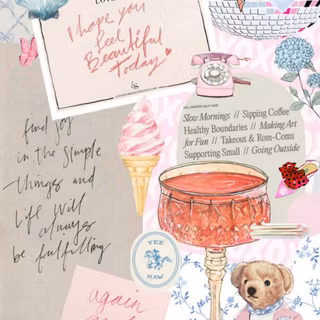 I hope you
feel
Beautiful
Today
Slow Mornings // Sipping Coffee
Healthy Boundaries // Making Art
for Fun // Takeout & Rom-Coms
Supporting Small // Going Outside
find joy
in the simple
things and
life will
always
be fulfilling
YEE
HAW
again